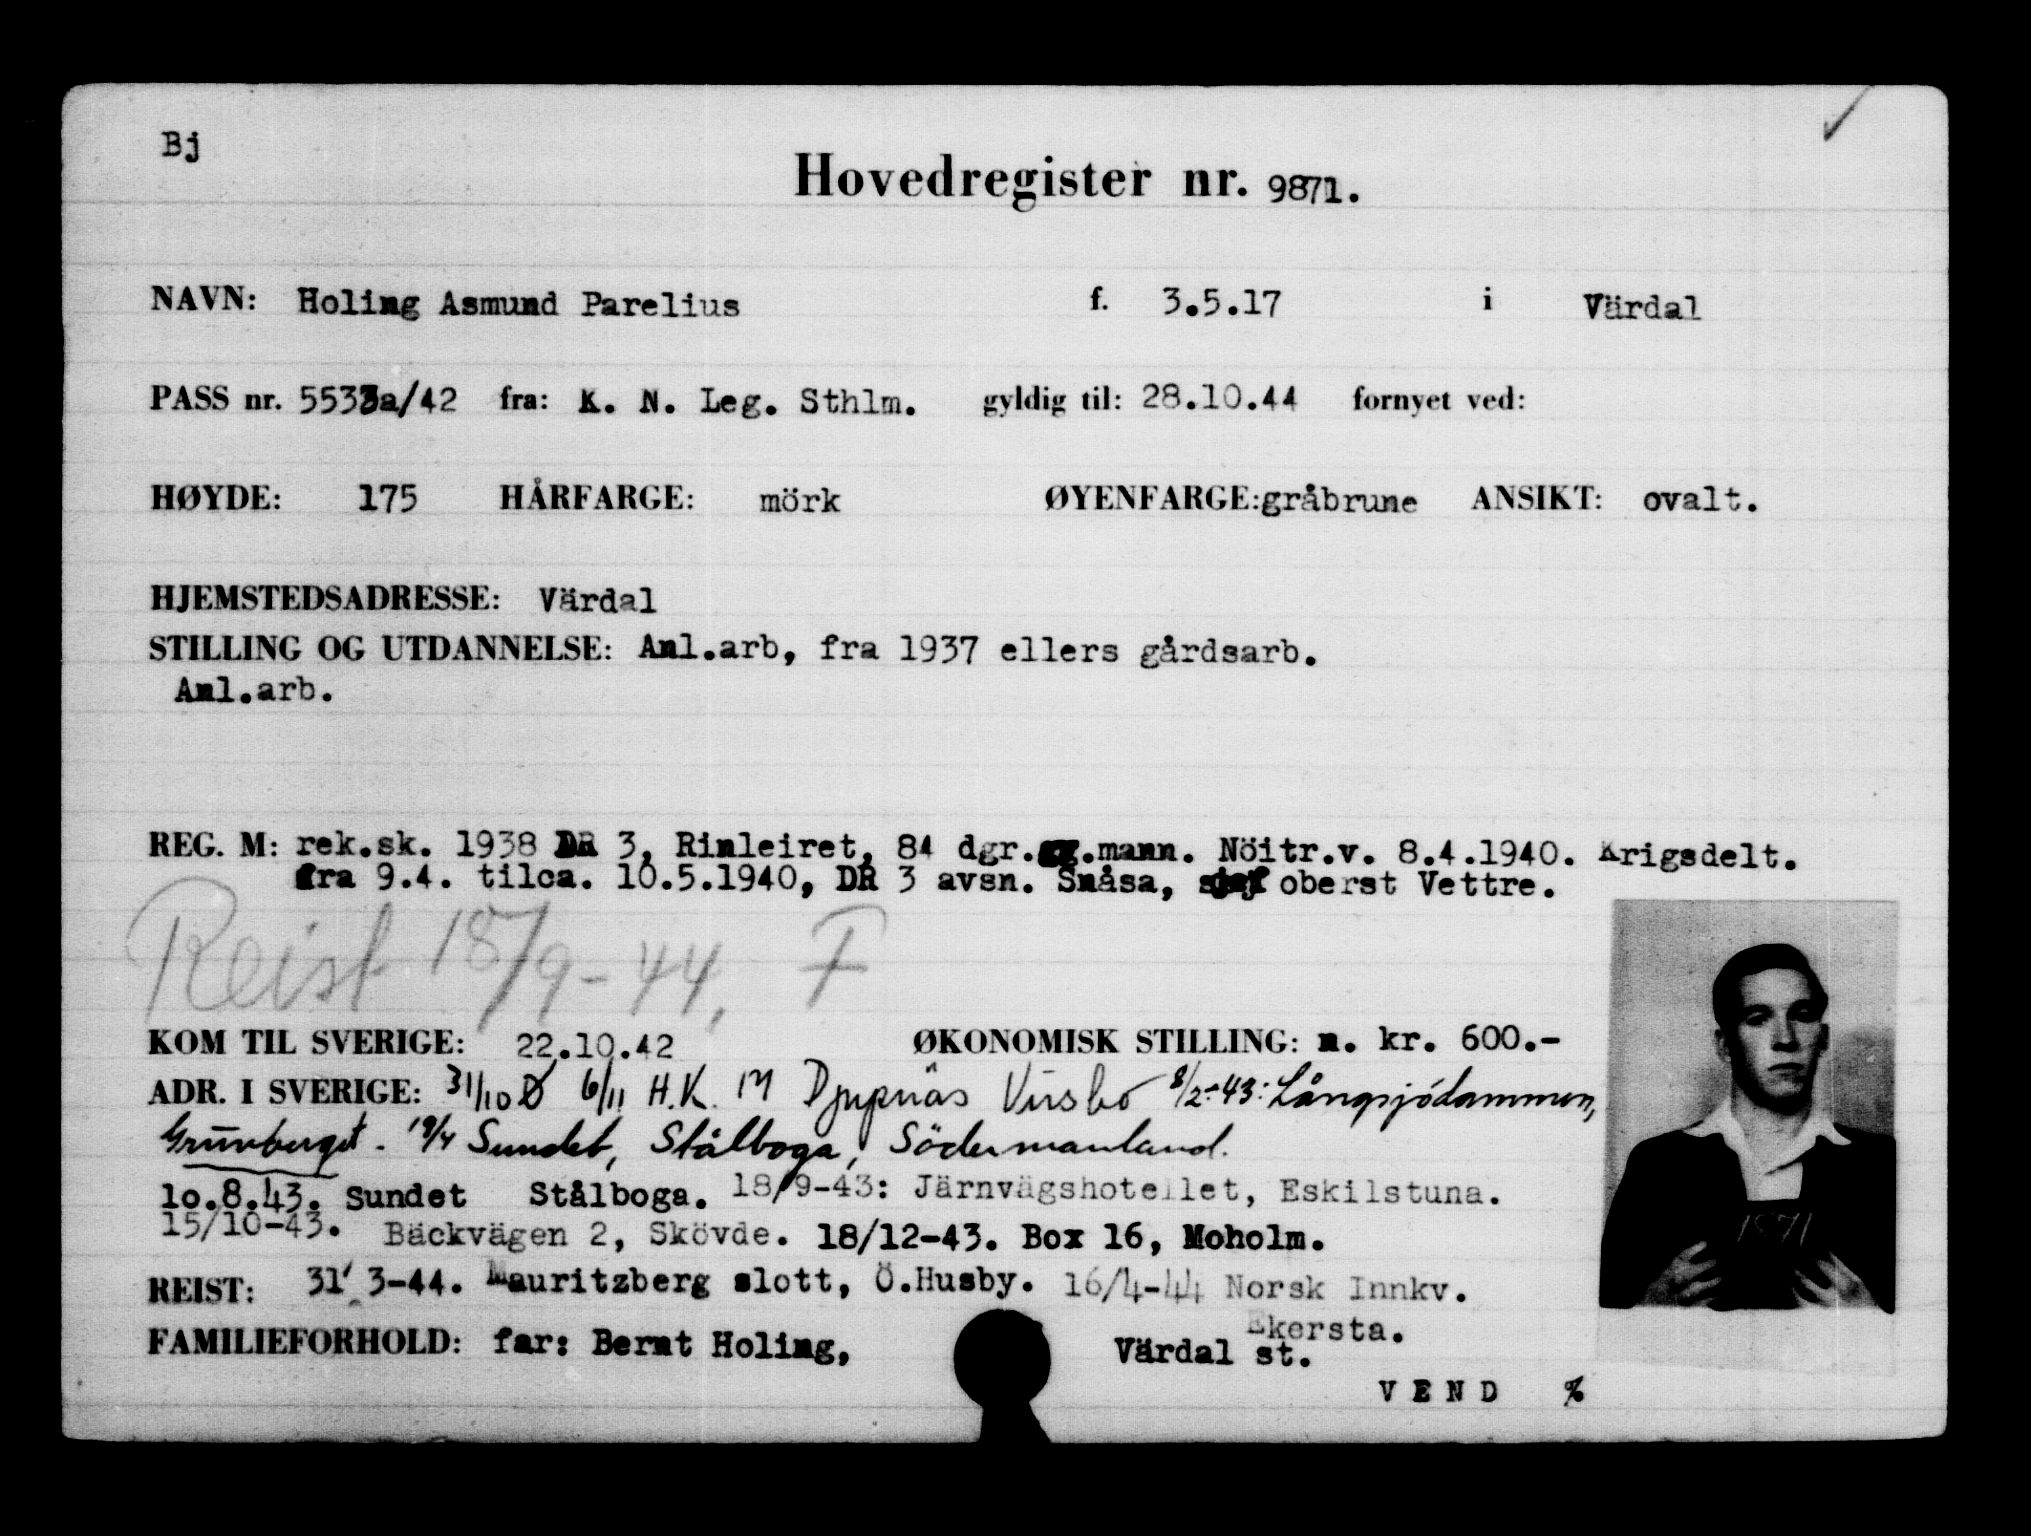 Bj
Hovedregister nr. 9871.
NAVN: Holing Asmund Parelius f. 3.5.17 i Värdal
PASS nr. 5533a/42 fra: K. N. Leg. Sthlm. gyldig til: 28.10.44 fornyet ved:
HØYDE: 175 HÅRFARGE: mörk ØYENFARGE: gråbrune ANSIKT: ovalt.
HJEMSTEDSADRESSE: Värdal
STILLING OG UTDANNELSE: Anl.arb, fra 1937 ellers gårdsarb.
Anl.arb.
REG. M: rek.sk. 1938 DR 3, Rinleiret, 84 dgr. .mann. Nöitr.v. 8.4.1940. Krigsdelt.
fra 9.4. tilca. 10.5.1940, DR 3 avsn. Snåsa, sjef oberst Vettre.
Reist 18/9-44, F
KOM TIL SVERIGE: 22.10.42 ØKONOMISK STILLING: n. kr. 600.-
ADR. I SVERIGE: 31/10 Ø 6/11 H.K. Djupnäs Virsbo 8/2-43: Långsjödammen,
Grünberget. 19/4 Sundet, Stålboga, Södermanland.
10.8.43. Sundet Stålboga. 18/9-43: Järnvägshotellet, Eskilstuna.
15/10-43. Bäckvägen 2, Skövde. 18/12-43. Box 16, Moholm.
REIST: 31/3-44. Mauritzberg slott, Ö.Husby. 16/4-44 Norsk Innkv.
Ekersta.
FAMILIEFORHOLD: far: Bernt Holing, Värdal st.
VEND %
1871